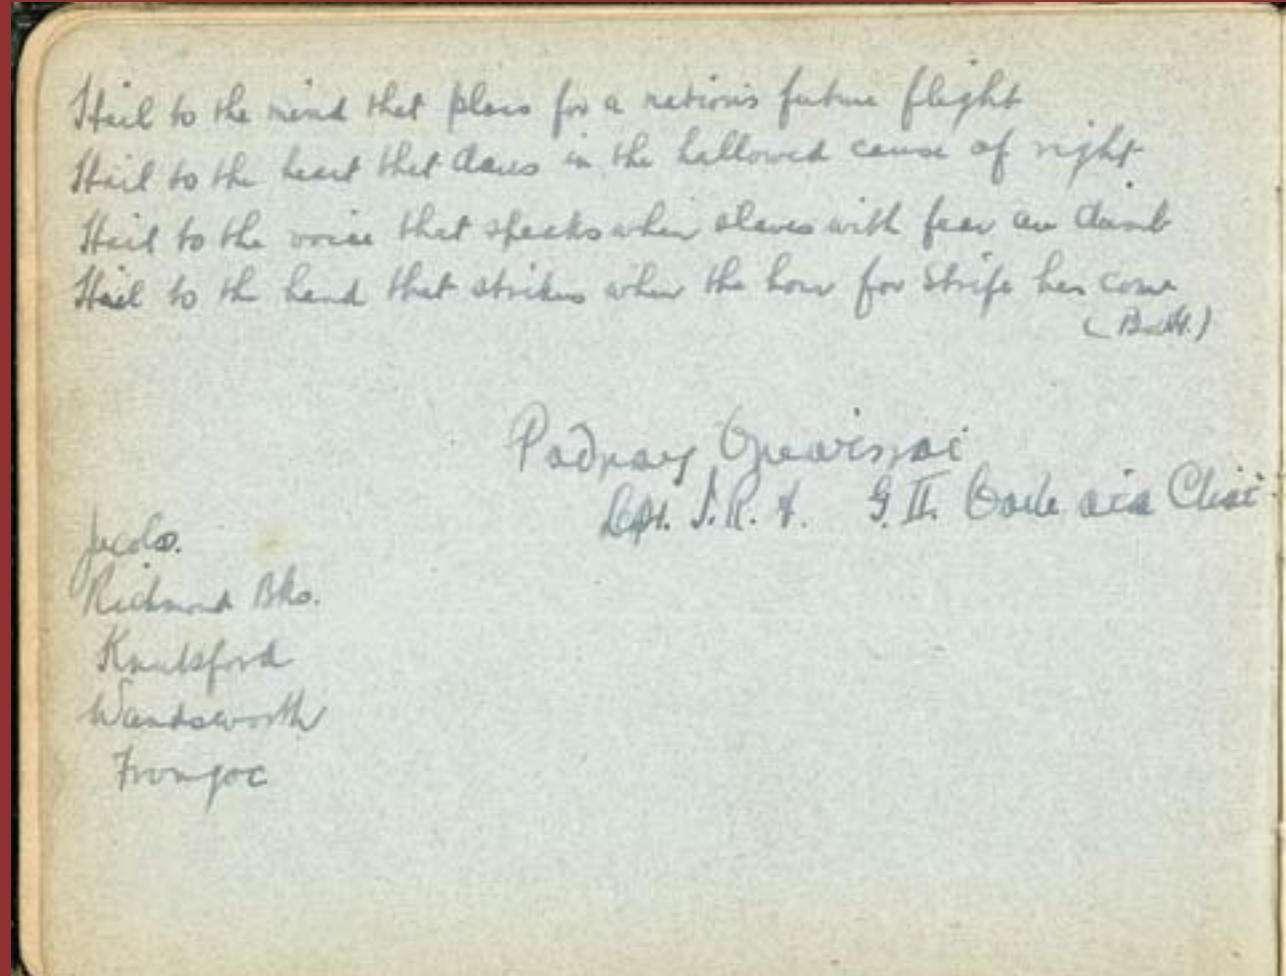 Hail to the mind that plans for a nation's future flight
Hail to the heart that dares in the hallowed cause of right
Hail to the voice that speaks when slaves with fear are dumb
Hail to the hand that strikes when the hour for strife has come
Capt. I.R.A. G. II. áta Cliat
Jacobs.
Richmond Bks.
Knutsford
Wandsworth
Frongoc